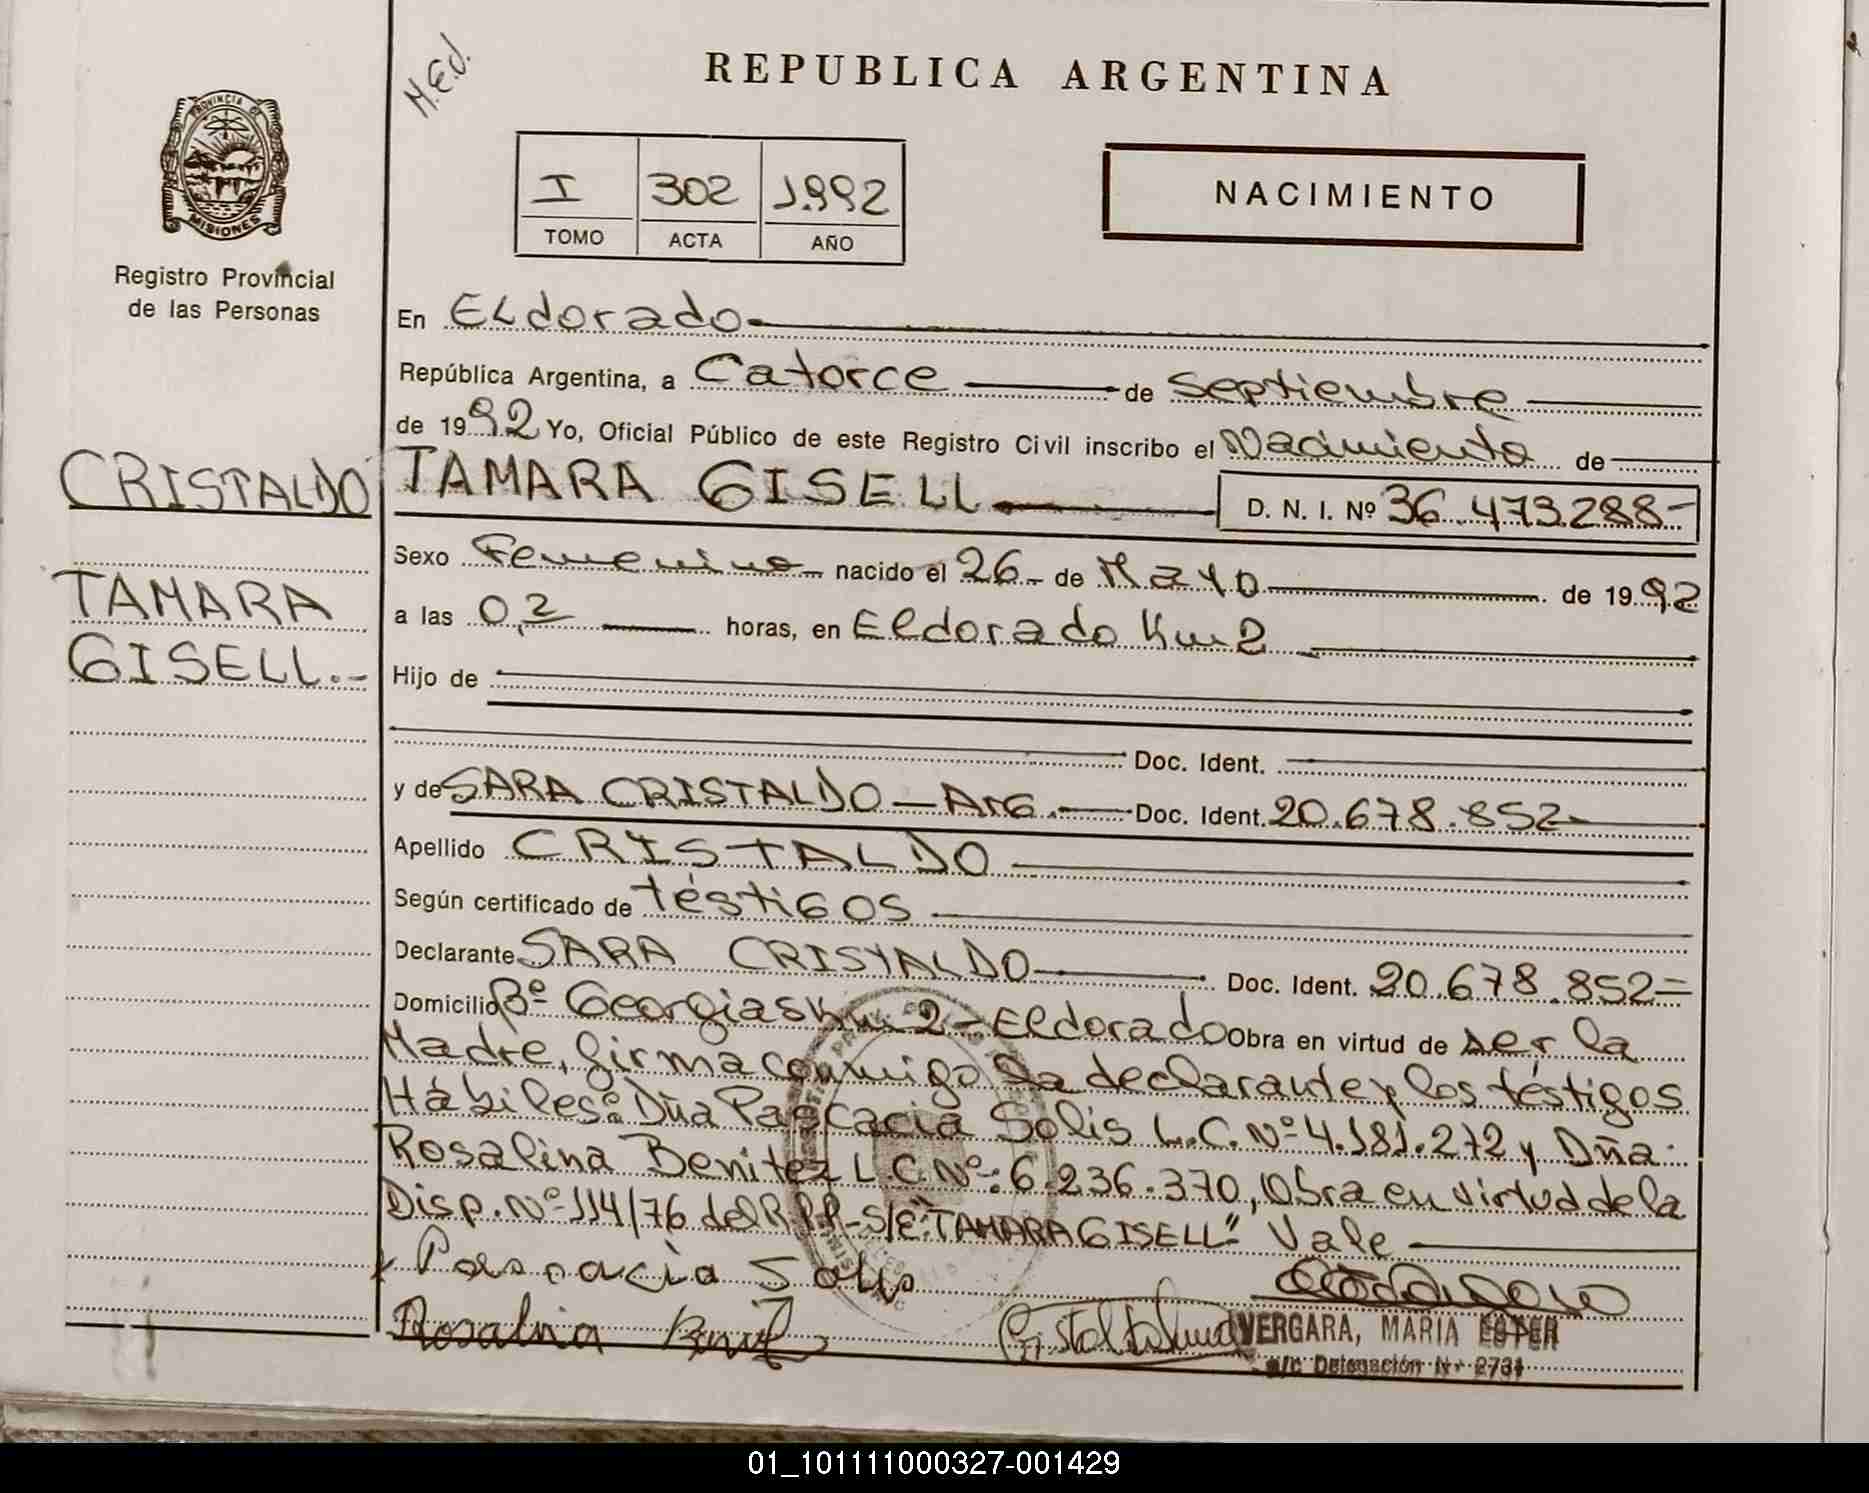 M.E.J.
REPUBLICA ARGENTINA
PROVINCIA DE
MISIONES
Registro Provincial
de las Personas
I 302 1.992
TOMO ACTA AÑO
NACIMIENTO
En Eldorado
República Argentina, a Catorce de Septiembre
de 1992 Yo, Oficial Público de este Registro Civil inscribo el Nacimiento de
CRISTALDO
TAMARA GISELL D. N. I. Nº 36.473.288-
Sexo Femenino nacido el 26 de Mayo de 1992
TAMARA
GISELL.-
a las 0,2 horas, en Eldorado Km 2
Hijo de
Doc. Ident.
y de SARA CRISTALDO - Arg. Doc. Ident. 20.678.852-
Apellido CRISTALDO
Según certificado de téstigos
Declarante SARA CRISTALDO Doc. Ident. 20.678.852=
Domicilio Bº Georgias Km 2 - Eldorado Obra en virtud de ser la
Madre, firma conmigo la declarante y los téstigos
Hábiles: Dña Pascacia Solis L.C. Nº 4.181.272 y Dña.
Rosalina Benitez L.C. Nº: 6.236.370, Obra en virtud de la
Disp. Nº 114/76 del R.P.P.- S/E: "TAMARA GISELL" Vale
Pascacia Solis
Rosalina Benitez
Cristaldo
VERGARA, MARIA ESTER
a/c Delegación Nº 2731
01_101111000327-001429